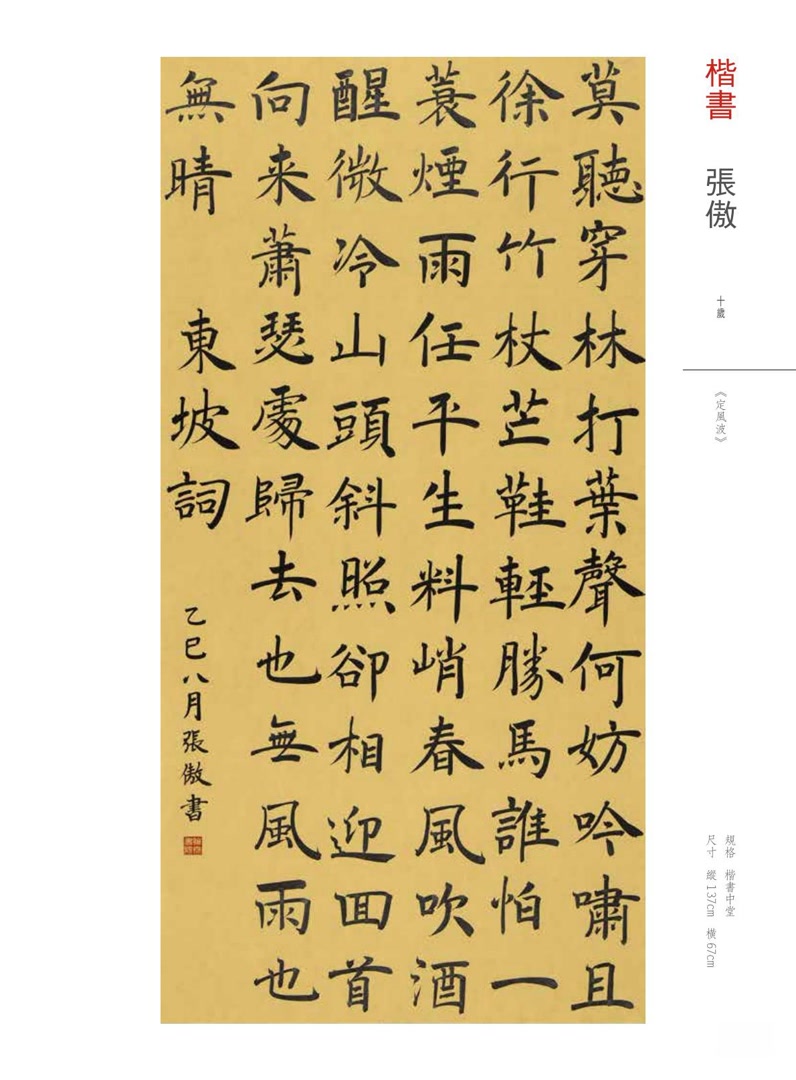 楷書 張傲
十歲
《定風波》
規格 楷書中堂
尺寸 縱137cm 橫67cm
莫聽穿林打葉聲何妨吟嘯且
徐行竹杖芒鞋輕勝馬誰怕一
蓑煙雨任平生料峭春風吹酒
醒微冷山頭斜照卻相迎回首
向来蕭瑟處歸去也無風雨也
無晴 東坡詞
乙巳八月張傲書